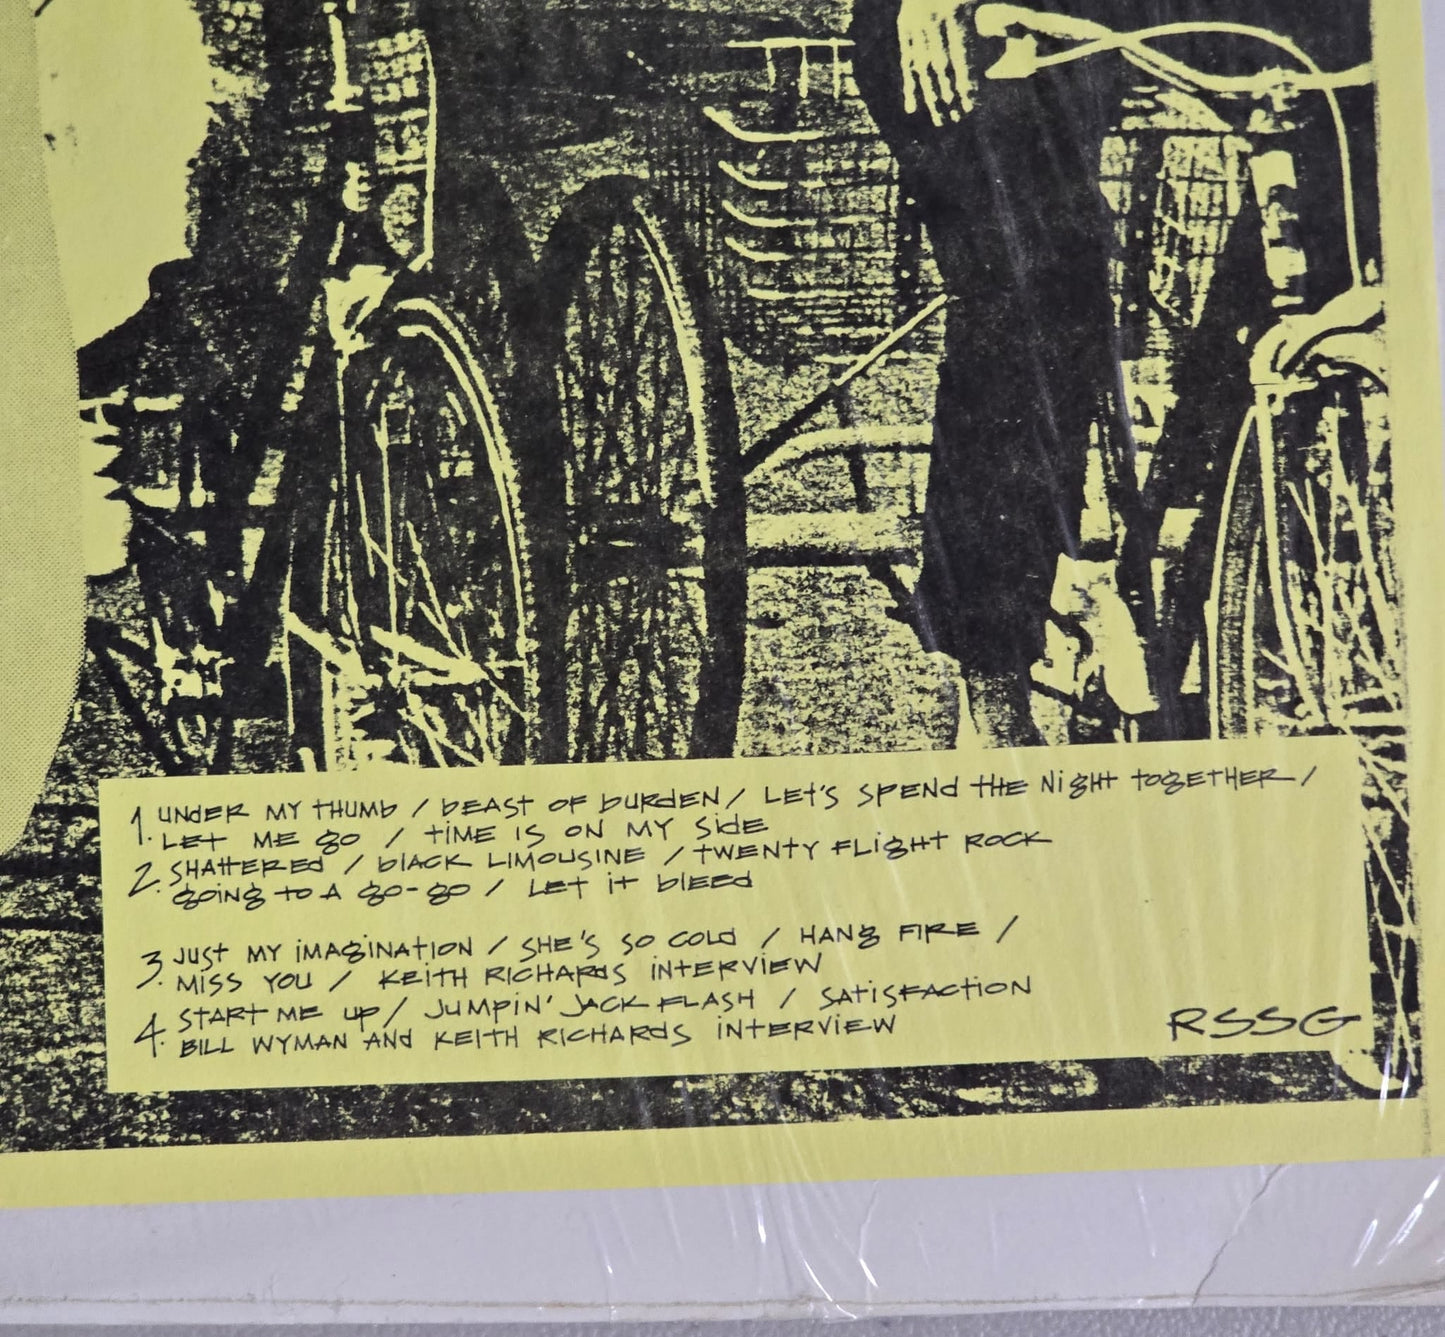 1. UNDER MY THUMB / BEAST OF BURDEN / LET'S SPEND THE NIGHT TOGETHER /
LET ME GO / TIME IS ON MY SIDE
2. SHATTERED / BLACK LIMOUSINE / TWENTY FLIGHT ROCK
GOING TO A GO-GO / LET IT BLEED
3. JUST MY IMAGINATION / SHE'S SO COLD / HANG FIRE /
MISS YOU / KEITH RICHARDS INTERVIEW
4. START ME UP / JUMPIN' JACK FLASH / SATISFACTION
BILL WYMAN AND KEITH RICHARDS INTERVIEW
RSSG